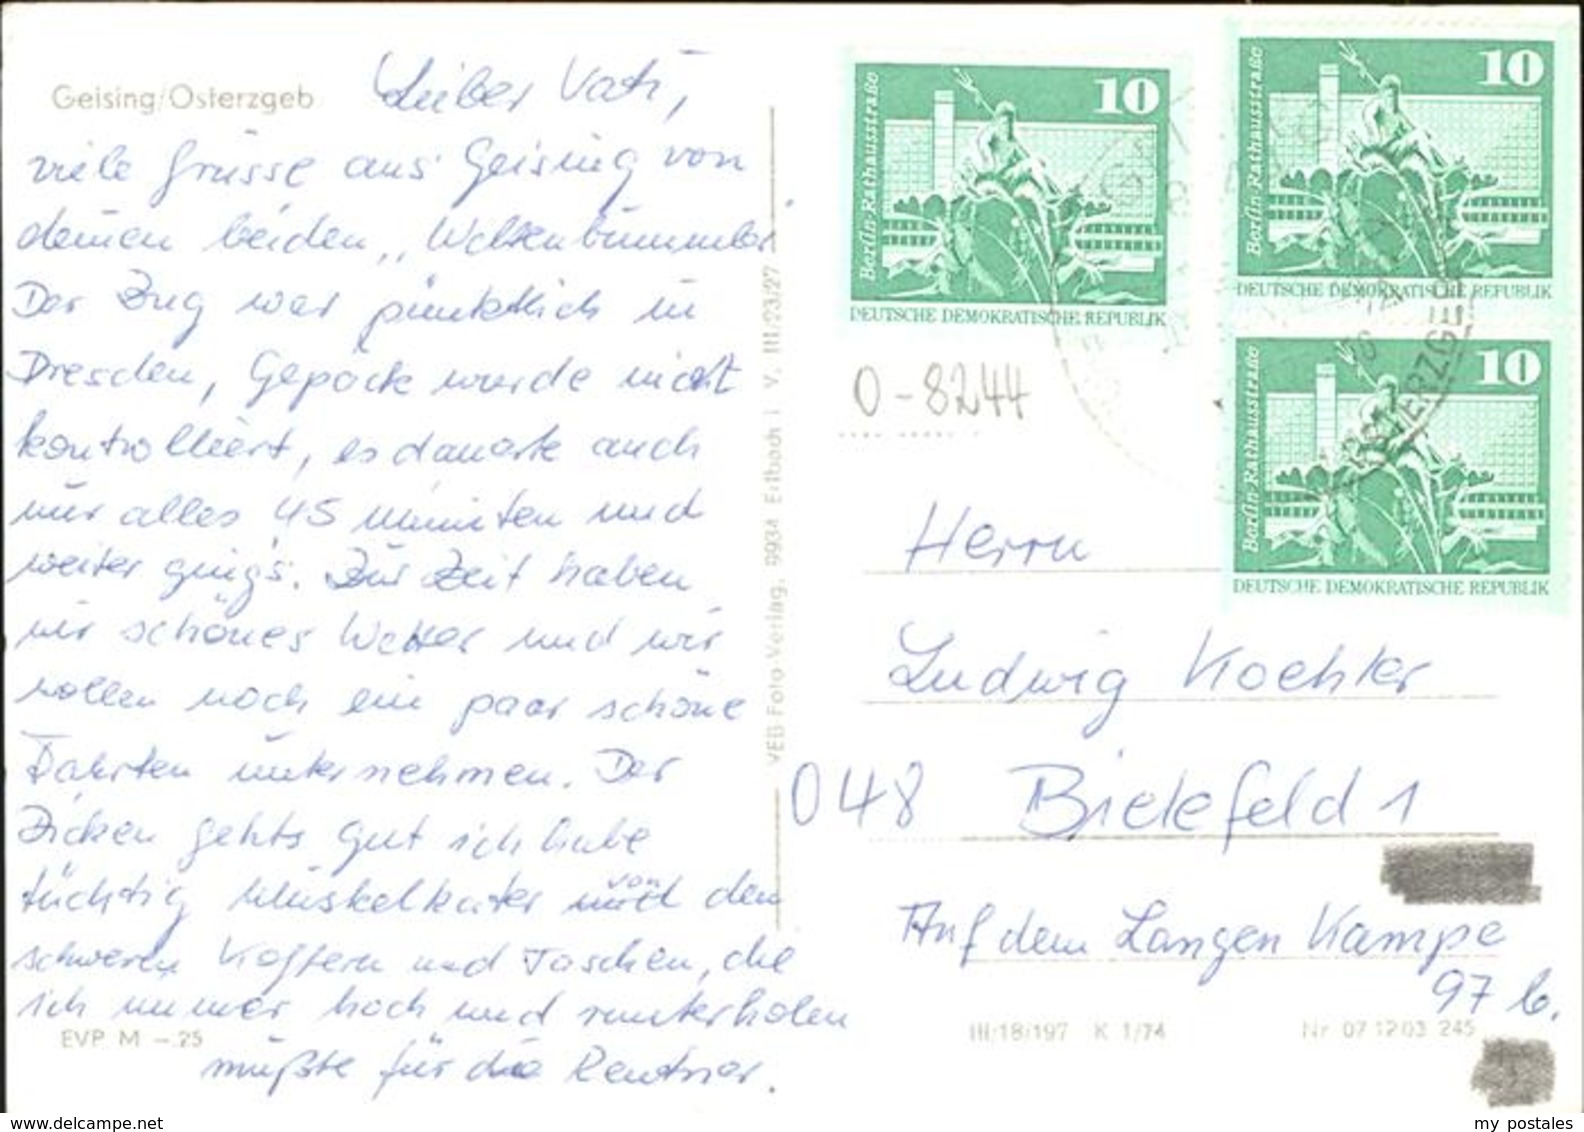 Geising/Osterzgeb
Lieber Vati,
viele Grüsse aus Geising von
deinen beiden „Weltenbummler"
Der Zug war pünktlich in
Dresden, Gepäck wurde nicht
kontrolliert, es dauerte auch
nur alles 45 Minuten und
weiter ging's. Zur Zeit haben
wir schönes Wetter und wir
wollen noch ein paar schöne
Fahrten unternehmen. Der
Zicken gehts gut ich habe
tüchtig Muskelkater von den
schweren Koffern und Taschen, die
ich immer hoch und runterholen
mußte für die Rentner.
EVP M –.25
VEB Foto-Verlag, 9934 Erlbach i. V. III/23/27
10
Berlin-Rathausstraße
DEUTSCHE DEMOKRATISCHE REPUBLIK
10
Berlin-Rathausstraße
DEUTSCHE DEMOKRATISCHE REPUBLIK
10
Berlin-Rathausstraße
DEUTSCHE DEMOKRATISCHE REPUBLIK
O-8244
Herrn
Ludwig Koehler
048 Bielefeld 1
Auf dem Langen Kampe
97 b.
III/18/197 K 1/74 Nr 07 12 03 245
www.delcampe.net
my postales